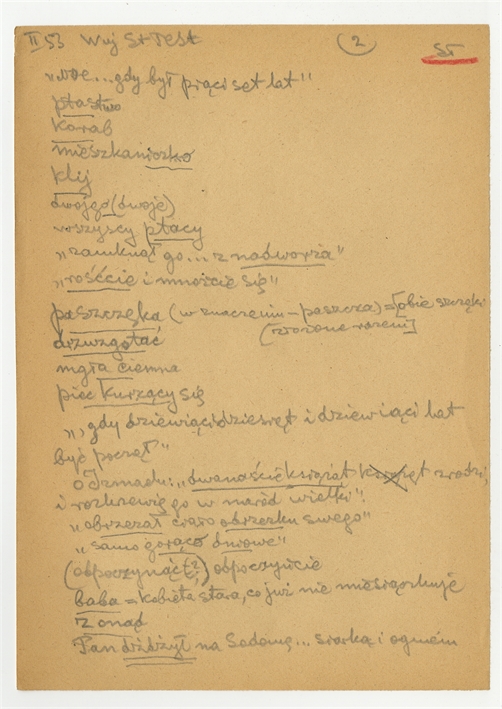 II 53 Wuj St Test
2
ST
„Noe... gdy był pięci set lat"
ptastwo
Korab
mieszkaniczko
klij
dwojgo (dwoje)
wszyscy ptacy
„zamknął go... z nadworza"
„rośćcie i mnóżcie się"
paszczęka (w znaczeniu – paszcza) = [obie szczęki
(złożone razem]
dżwzgotać
mgła ciemna
piec kurzący się
„gdy dziewiącidziesiąt i dziewiąci lat
być począł"
O Izmaelu: „dwanaście książąt zrodzi,
i rozkrzewię go w naród wielki"
„obrzezał ciało obrzezku swego"
„samo gorąco dniowe"
(odpoczynąć?) odpoczyńcie
baba = kobieta stara, co już nie miesiączkuje
Zonąd
Pan dżdżył na Sodomę... siarką i ogniem